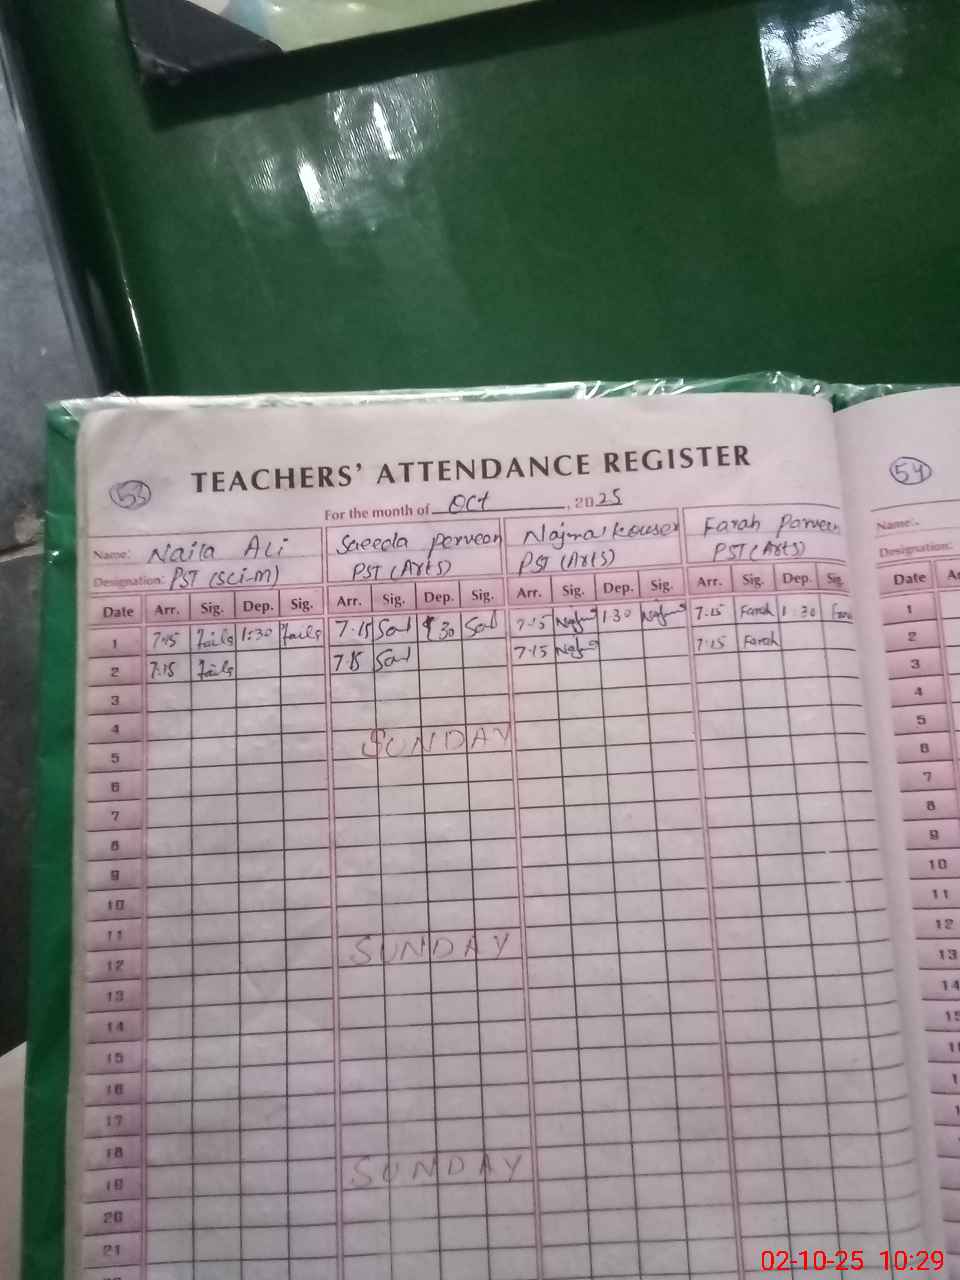 53
TEACHERS' ATTENDANCE REGISTER
54
For the month of Oct, 2025
Name: Naila Ali Saeeda perveen Najma kouser Farah Parveen
Name:
Designation: PST (Sci-m) PST (Arts) PST (Arts) PST (Arts)
Designation:
Date Arr. Sig. Dep. Sig. Arr. Sig. Dep. Sig. Arr. Sig. Dep. Sig. Arr. Sig. Dep. Sig.
Date
1 1:30 7.15 7.15 1:30 7.15 Farah 1:30
2 7:15 7.15 7.15 7.15 Farah
3
4
5 SUNDAY
6
7
8
9
10
11
12 SUNDAY
13
14
15
16
17
18
19 SUNDAY
20
21
1
2
3
4
5
6
7
8
9
10
11
12
13
14
02-10-25 10:29